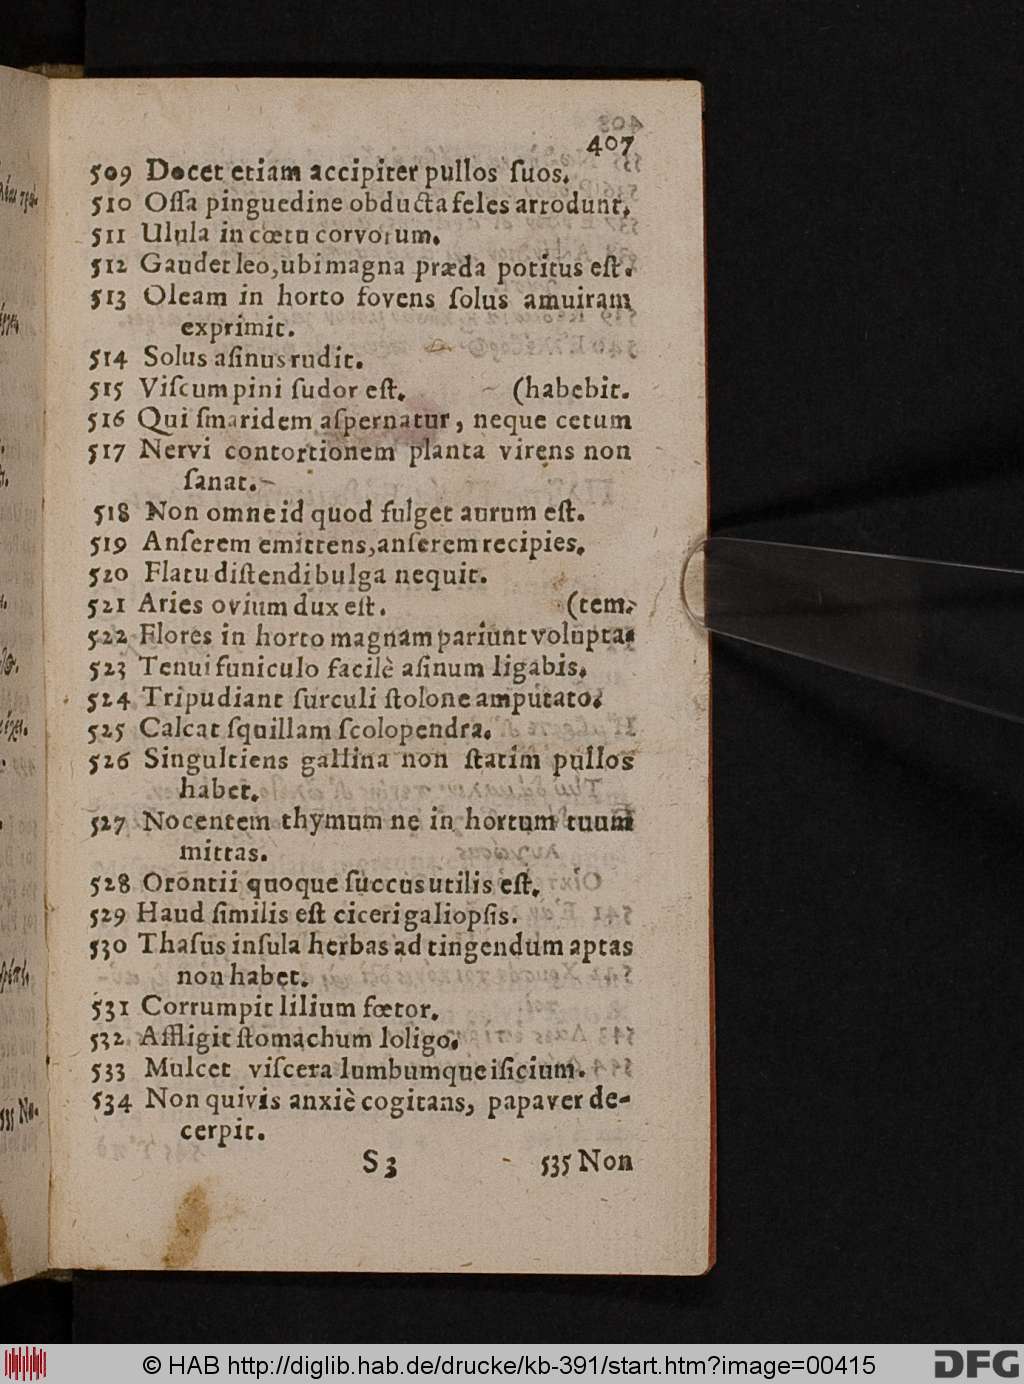 407
509 Docet etiam accipiter pullos ſuos.
510 Oſſa pinguedine obducta feles arrodunt.
511 Ulula in cœtu corvorum.
512 Gaudet leo, ubi magna præda potitus eſt.
513 Oleam in horto fovens ſolus amuiram
exprimit.
514 Solus aſinus rudit.
515 Viſcum pini ſudor eſt. (habebit.
516 Qui ſmaridem aſpernatur, neque cetum
517 Nervi contortionem planta virens non
ſanat.
518 Non omne id quod fulget aurum eſt.
519 Anſerem emittens, anſerem recipies.
520 Flatu diſtendi bulga nequit.
521 Aries ovium dux eſt. (tem.
522 Flores in horto magnam pariunt volupta-
523 Tenui funiculo facilè aſinum ligabis.
524 Tripudiant ſurculi ſtolone amputato.
525 Calcat ſquillam ſcolopendra.
526 Singultiens gallina non ſtatim pullos
habet.
527 Nocentem thymum ne in hortum tuum
mittas.
528 Orontii quoque ſuccus utilis eſt.
529 Haud ſimilis eſt ciceri galiopſis.
530 Thaſus inſula herbas ad tingendum aptas
non habet.
531 Corrumpit lilium fœtor.
532 Affligit ſtomachum loligo.
533 Mulcet viſcera lumbumque iſicium.
534 Non quivis anxiè cogitans, papaver de-
cerpit.
S 3 535 Non
© HAB http://diglib.hab.de/drucke/kb-391/start.htm?image=00415
DFG